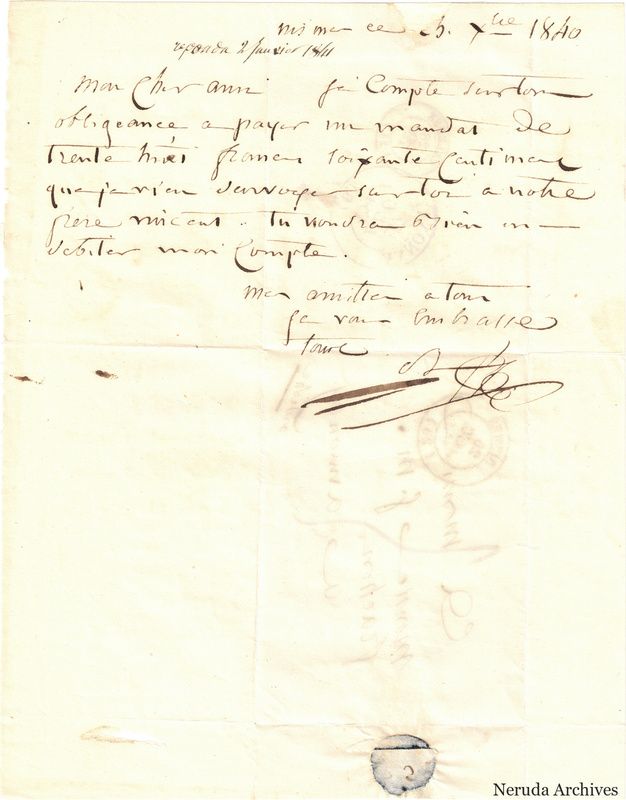 nismes ce 5. Xbre 1840
reponda 2 Janvier 1841
mon cher ami je Compte sur ton
obligeance a payer un mandat De
trente huit francs soixante Centimes
que je vien d'envoyer sur toi a notre
frere vincent. tu voudra bien en
debiter mon Compte.
mes amitiés a tous
je vous Embrasse
tous
Neruda Archives